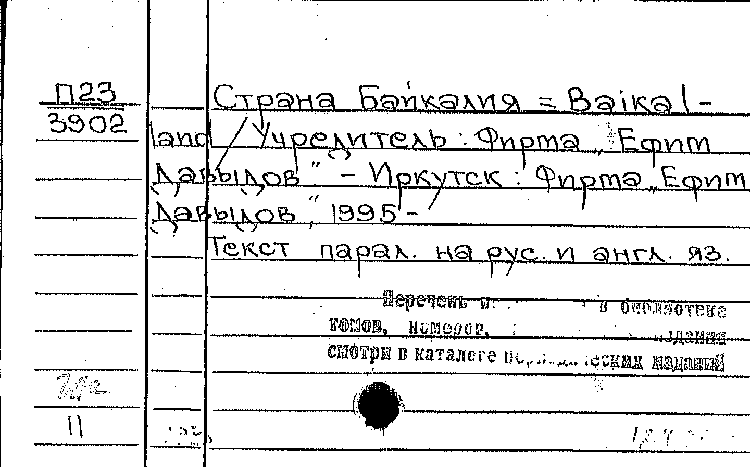 П23
3902
Страна Байкалия = Baikal-
land / Учредитель: Фирма „Ефим
Давыдов" - Иркутск: Фирма „Ефим
Давыдов", 1995 -
Текст парал. на рус. и англ. яз.
Перечень в библиотеке
томов, номеров, издания
смотри в каталоге периодических изданий
11